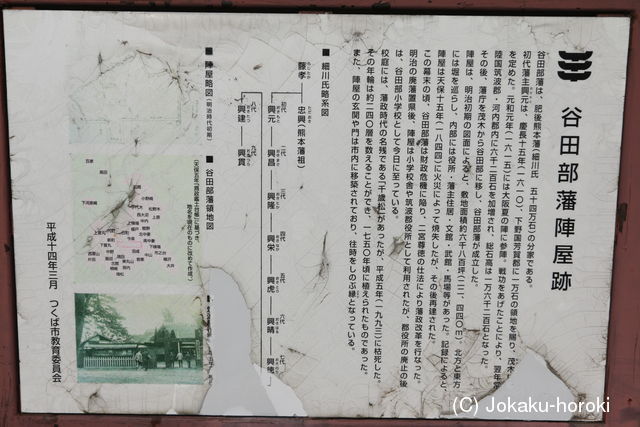 谷田部藩陣屋跡
谷田部藩は、肥後熊本藩（細川氏 五十四万石）の分家である。
初代藩主興元は、慶長十五年（一六一〇）、下野国芳賀郡に一万石の領地を賜り、茂木
を定めた。元和元年（一六一五）には大坂夏の陣に参陣。戦功をあげたことにより、翌年常
陸国筑波郡・河内郡内に六千二百石を加増され、総石高は一万六千二百石となった。
その後、藩庁を茂木から谷田部に移し、谷田部藩が成立した。
陣屋は、明治初期の図面によると、敷地面積約六千八百坪（二二、四四〇㎡）。北方と東方
には堀を巡らし、内部には役所・藩主住居・文館・武館・馬場等があった。記録によると、
陣屋は天保十五年（一八四四）に火災によって焼失したが、その後再建された。
この幕末の頃、谷田部藩は財政危機に陥り、二宮尊徳の仕法により藩政改革を行なった。
明治の廃藩置県後、陣屋は小学校舎や筑波郡役所として利用されたが、郡役所の廃止の後
は、谷田部小学校として今日に至っている。
校庭には、藩政時代の名残である「千歳松」があったが、平成五年（一九九三）に枯死した。
その年輪は約二四〇層を数えることができ、一七五〇年頃に植えられたものであった。
また、陣屋の玄関や門は市内に移築されており、往時をしのぶ縁となっている。
■ 細川氏略系図
藤孝
忠興（熊本藩祖）
初代
興元
二代
興昌
三代
興隆
四代
興栄
五代
興虎
六代
興晴
七代
興徳
八代
興建
九代
興貫
■ 陣屋略図（明治時代初期）
■ 谷田部藩領地図
（天保五年「貢政高土台帳」に基づき、
地名を現在のものに改めて作成。）
平成十四年三月 つくば市教育委員会
(C) Jokaku-horoki